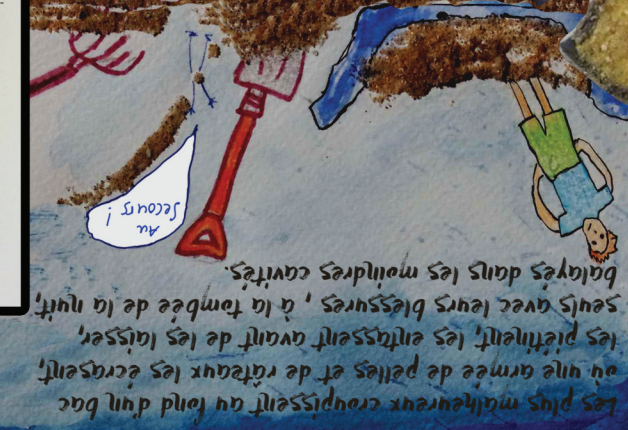 Les plus malheureux croupissent au fond d'un bac
où une armée de pelles et de râteaux les écrasent,
les piétinent, les entassent avant de les laisser,
seuls avec leurs blessures, à la tombée de la nuit,
balayés dans les moindres cavités.
Au
Secours !